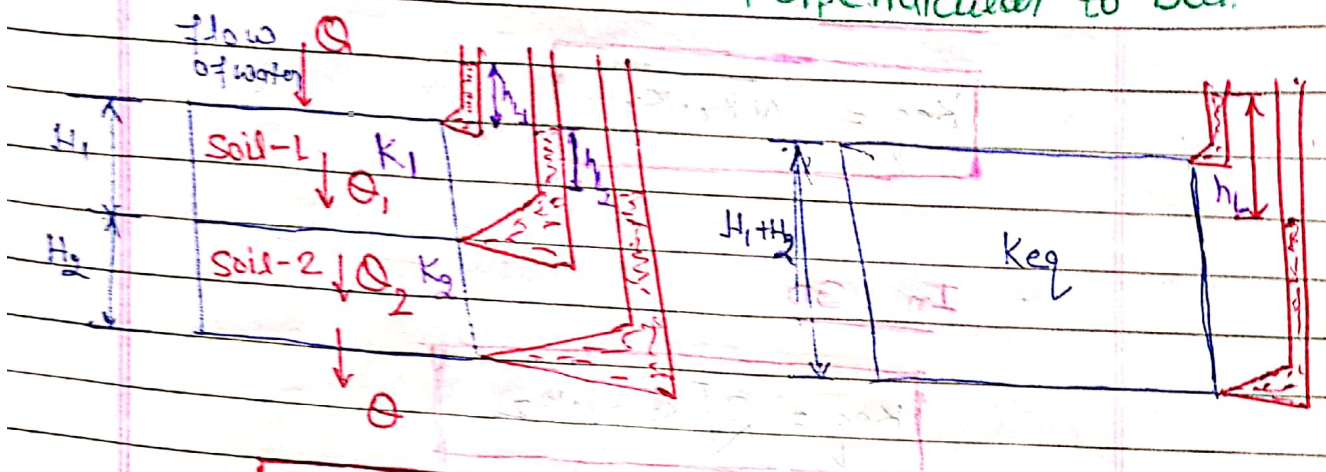 Perpendicular to bed.
flow Q
of water
h₁
H₁ Soil-1 K₁
Q₁
h₂
H₂ Soil-2 Q₂ K₂
Q
H₁+H₂ Keq hL